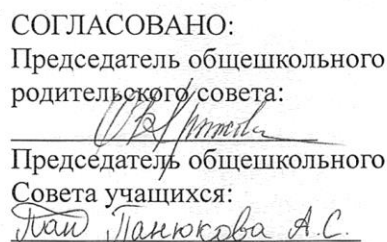 СОГЛАСОВАНО:
Председатель общешкольного
родительского совета:
Председатель общешкольного
Совета учащихся:
Пан Панюкова А.С.